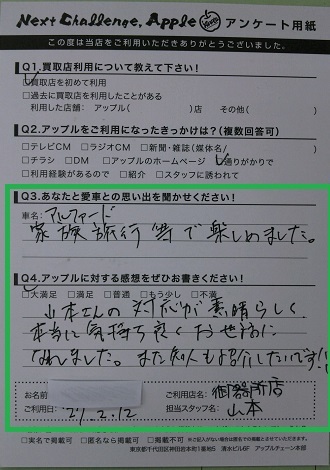 Next Challenge, Apple アンケート用紙
この度は当店をご利用いただきありがとうございました。
Q1.買取店利用について教えて下さい!
□買取店を初めて利用
□過去に買取店を利用したことがある
利用した店舗：アップル( )店 その他( )
Q2.アップルをご利用になったきっかけは?(複数回答可)
□テレビCM □ラジオCM □新聞・雑誌(媒体名 )
□チラシ □DM □アップルのホームページ □通りがかりで
□利用経験があるので □紹介 □スタッフに誘われて
Q3.あなたと愛車との思い出を聞かせください!
車名：アルファード
家族旅行等で楽しめました。
Q4.アップルに対する感想をぜひお書きください!
□大満足 □満足 □普通 □もう少し □不満
山本さんの対応が素晴らしく
本当に気持ち良くお世話に
なれました。また知人も紹介したいです!!
お名前
ご利用店名：御器所店
ご利用日：27.2.12
担当スタッフ名：山本
□実名で掲載可 □匿名なら掲載可 □掲載不可
東京都千代田区神田佐木町1番地5 清水ビル6F アップルチェーン本部